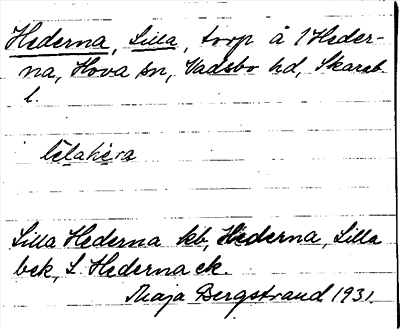 Hederna, Lilla, torp å 1 Heder-
na, Hova sn, Vadsbo hd, Skarab.
l.
Lilla Hederna kb, Hederna, Lilla
bek, L. Hederna ek.
Maja Bergstrand 1931.